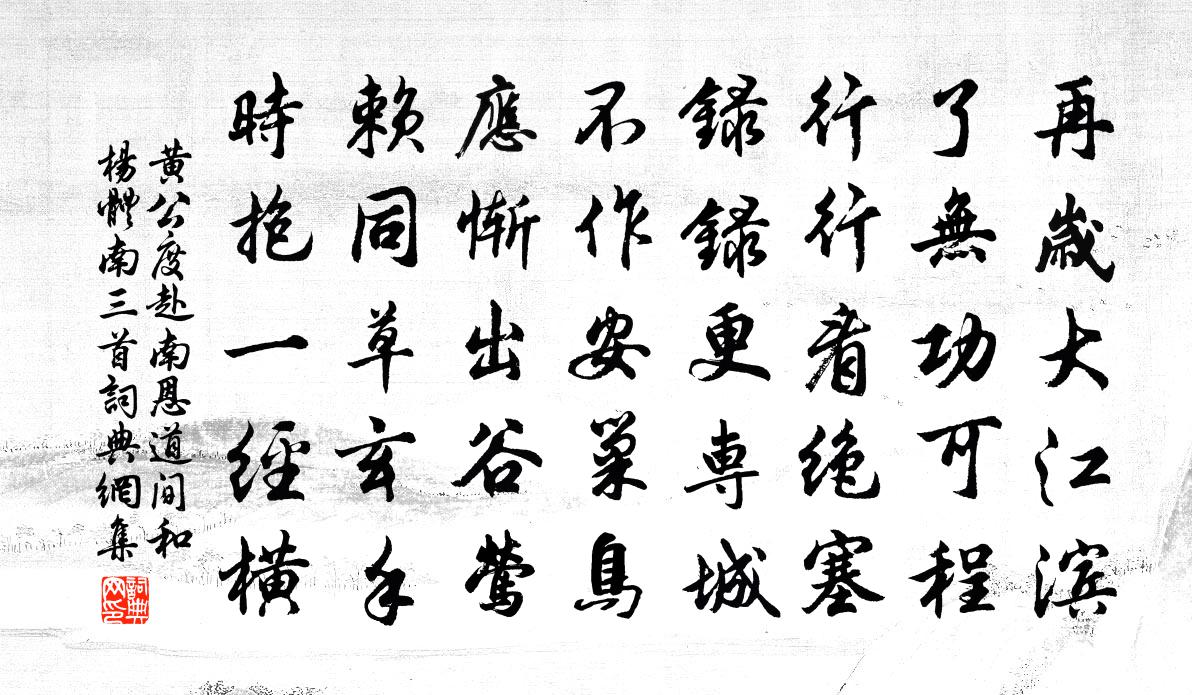 再歲大江滨
了無功可程
行行看绝塞
録録更専城
不作安巢鳥
應慚出谷鶯
賴同草玄手
時抱一經橫
黄公度赴南恩道间和
楊體南三首詞典網集
詞典
网印